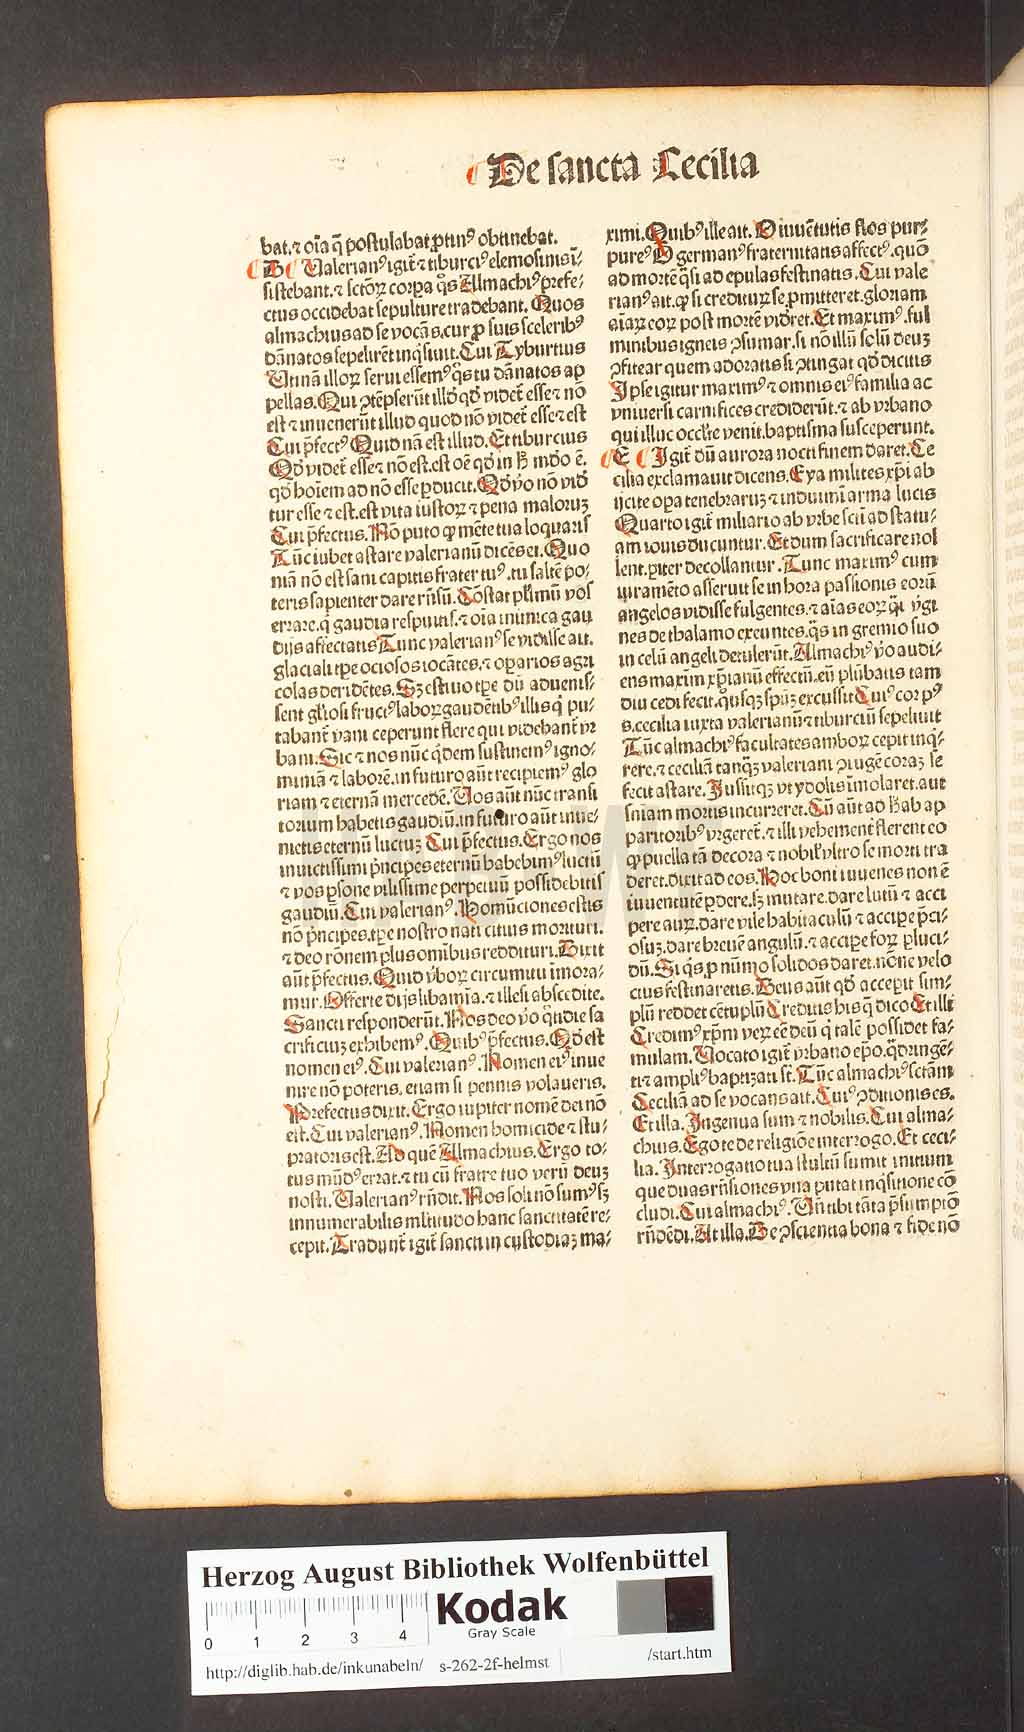 De sancta Cecilia
bat. ⁊ oı̃a q̃ postulabat ꝓtinꝰ obtinebat.
D Ualerianꝰ igit̃ ⁊ tiburciꝰ elemosinis ı̃-
sistebant. ⁊ sctõꝝ corꝑa q̃s Almachiꝰ p̃fe-
ctus occidebat sepulture tradebant. Quos
almachius ad se vocãs. cur ꝓ suis sceleribꝰ
dãnatos sepelirẽt inq̇siuit. Cui Tyburtius
Utinã illoꝝ serui essemꝰ q̃s tu dãnatos ap
pellas. Qui ꝯtẽpserũt illd̃ qd̃ videt̃ esse ⁊ nõ
est ⁊ inuenerũt illud quod nõ videt̃ esse ⁊ est
Cui p̃fectꝰ Quid nã est illud. Et tiburcius
Qd̃ videt̃ esse ⁊ nõ est. est oẽ qd̃ in h̃ mũdo ẽ.
qd̃ hoı̃em ad nõ esse ꝑducit. Qd̃ ṽo nõ vid̃
tur esse ⁊ est. est vita iustoꝝ ⁊ pena maloruꝫ
Cui p̃fectus. Nõ puto ꝙ mẽte tua loquaris
Tũc iubet astare valerianũ dicẽs ei. Quo
niã nõ est sani capitis frater tuꝰ. tu saltẽ po-
teris sapienter dare rñsũ. Cõstat pl̃imũ vos
errare. q̇ gaudia respuitis. ⁊ oı̃a inimica gau
dijs affectatis Tunc valerianꝰ se vidisse ait.
glaciali tꝑe ociosos iocãtes. ⁊ oꝑarios agri
colas deridẽtes. Sꝫ estiuo tꝑe dũ aduenis-
sent gl̃iosi fructꝰ laboꝝ gaudẽtibꝰ illis q̇ pu-
tabant̃ vani ceperunt flere qui videbant̃ vr
bani. Sic ⁊ nos nũc q̇dem sustinemꝰ igno-
miniã ⁊ laborẽ. in futuro aũt recipiemꝰ glo
riam ⁊ eternã mercedẽ. Uos aũt nũc transi
torium habetis gaudiũ. in futuro aũt inue-
nietis eternũ luctuꝫ Cui p̃fectus. Ergo nos
inuictissimi p̃ncipes eternũ habebimꝰ luctũ
⁊ vos ꝑsone vilissime perpetuũ possidebitis
gaudiũ. Cui valerianꝰ. Homũciones estis
nõ p̃ncipes. tꝑe nostro nati citius morituri.
⁊ deo rõnem plus omnibus reddituri. Dixit
aũt p̃fectus. Quid ṽboꝝ circumitu ı̃mora-
mur. Offerte dijs libamı̃a. ⁊ illesi abscedite.
Sancti responderũt. Nos deo ṽo q̃tidie sa
crificiuꝫ exhibemꝰ. Quibꝰ p̃fectus. Qd̃ est
nomen eiꝰ. Cui valerianꝰ. Nomen eiꝰ inue
nire nõ poteris. etiam si pennis volaueris.
Prefectus dixit. Ergo iupiter nomẽ dei nõ
est. Cui valerianꝰ. Nomen homicide ⁊ stu-
pratoris est. Ad quẽ Almachius. Ergo to-
tus mũdꝰ errat. ⁊ tu cũ fratre tuo verũ deuꝫ
nosti. Ualerianꝰ rñdit. Nos soli nõ sumꝰ sꝫ
innumerabilis ml̃titudo hanc sanctitatẽ re-
cepit. Tradunt̃ igit̃ sancti in custodiaꝫ ma-
ximi. Quibꝰ ille ait. O iuuẽtutis flos pur-
pureꝰ O germanꝰ fraternitatis affectꝰ. quõ
ad mortẽ q̃si ad epulas festinatis. Cui vale
rianꝰ ait. ꝙ si crediturꝫ se ꝓmitteret. gloriam
aı̃aꝝ eoꝝ post mortẽ vid̃ret. Et maximꝰ. ful
minibus igneis ꝯsumar. si nõ illũ solũ deuꝫ
ꝯfitear quem adoratis si ꝯtingat qd̃ dicitis
Ipse igitur maximꝰ ⁊ omnis eiꝰ familia ac
vniuersi carnifices crediderũt. ⁊ ab vrbano
qui illuc occl̃te venit. baptisma susceperunt.
E Igit̃ dũ aurora nocti finem daret. Ce
cilia exclamauit dicens. Eya milites xp̃i ab
ijcite oꝑa tenebraruꝫ ⁊ induimı̃ arma lucis
Quarto igit̃ miliario ab vrbe sc̃ti ad statu-
am iouis ducuntur. Et dum sacrificare nol
lent. ꝑiter decollantur. Tunc maximꝰ cum
iuramẽto asseruit se in hora passionis eorũ
angelos vidisse fulgentes. ⁊ aı̃as eoꝝ q̃si ṽgi
nes de thalamo exeuntes. q̃s in gremio suo
in celũ angeli detulerũt. Almachiꝰ ṽo audi-
ens maximũ xp̃ianũ effectũ. eũ plũbatis tam
diu cedi fecit. q̇usqꝫ spũꝫ excussit Cuiꝰ corpꝰ
s. cecilia iuxta valerianũ ⁊ tiburciũ sepeliuit
Tũc almachiꝰ facultates amboꝝ cepit inq̇-
rere. ⁊ ceciliã tanq̃ꝫ valeriani ꝯiugẽ coraꝫ se
fecit astare. Jussitqꝫ vt ydolis ı̃molaret. aut
sñiam mortis incurreret. Cũ aũt ad h̃ ab ap
paritoribꝰ vrgeret̃. ⁊ illi vehement̃ flerent eo
ꝙ puella tã decora ⁊ nobilꝭ vltro se morti tra
deret. dixit ad eos. Hoc boni iuuenes non ẽ
iuuentutẽ ꝑdere. sꝫ mutare. dare lutũ ⁊ acci
pere auꝝ. dare vile habitaculũ ⁊ accipe p̃ci-
osuꝫ. dare breuẽ angulũ. ⁊ accipe foꝝ ꝑluci-
dũ. Si q̇s ꝓ nũmo solidos daret. nõne velo
cius festinaretis. Deus aũt qd̃ acceperit sim-
plũ reddet cẽtuplũ Creditis his q̃ dico Et illi
Credimꝰ xp̃m veꝝ eẽ deũ q̇ talẽ possidet fa-
mulam. Uocato igit̃ vrbano ep̃o. q̃dringẽ-
ti ⁊ ampliꝰ baptizati st̃. Tũc almachiꝰ sctãm
Ceciliã ad se vocans ait. Cuiꝰ ꝯditionis es.
Et illa. Ingenua sum ⁊ nobilis. Cui alma-
chius. Ego te de religiõe interrogo. Et ceci-
lia. Interrogatio tua stultũ sumit initium
que duas rñsiones vna putat inq̇sitione cõ
cludi. Cui almachiꝰ. Uñ tibi tãta p̃sumptio
rñdẽdi. At illa. De ꝯscientia bona ⁊ fide nõ
Herzog August Bibliothek Wolfenbüttel
0 1 2 3 4
Kodak
Gray Scale
http://diglib.hab.de/inkunabeln/ s-262-2f-helmst /start.htm